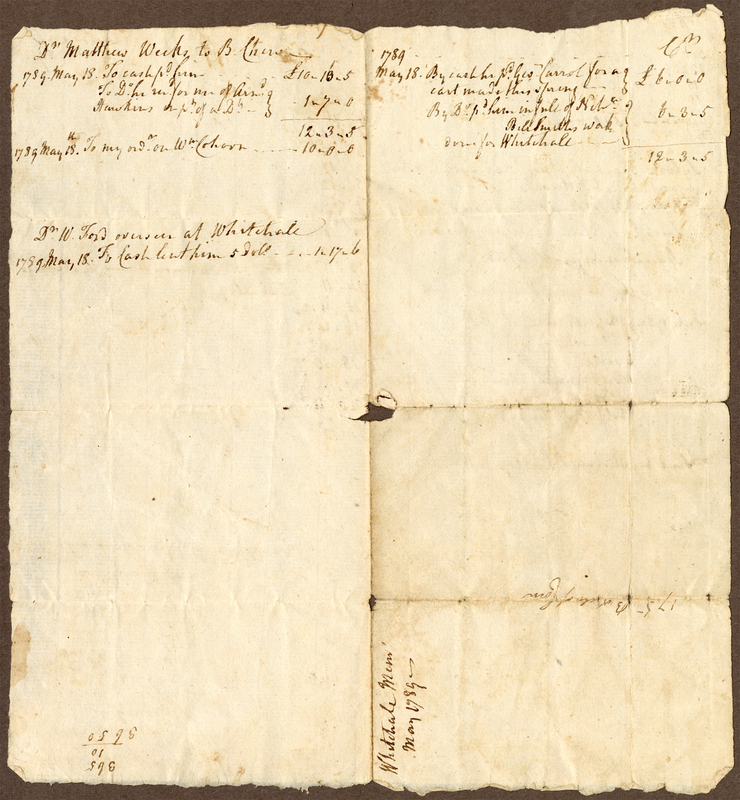 Dr Matthew Weeks to B. Chew
1789. May 18. To cash pd. him £10 - 16 - 5
To Do. he
Hawkins in pt. of a Do. 1 - 7 - 0
12 - 3 - 5
1789 May 18th. To my ordr. on Wm. Cohorn 10 - 0 - 0
Dr W. Ford overseer at Whitehale
1789 May 18. To Cash lent him 5 doll 1 - 17 - 6
36 50
10
365
1789 Cr
May 18. By cash he pd. Geo. Carrol for a
cart made this spring £ 6 - 0 - 0
By Do. pd. him in full of
Bill Smiths work
done for Whitehale 6 - 3 - 5
12 - 3 - 5
175
Whitehale Mem
May 1789